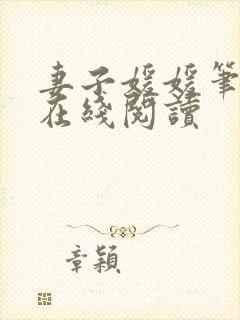 妻子媛媛筆
在綫閱讀
章穎